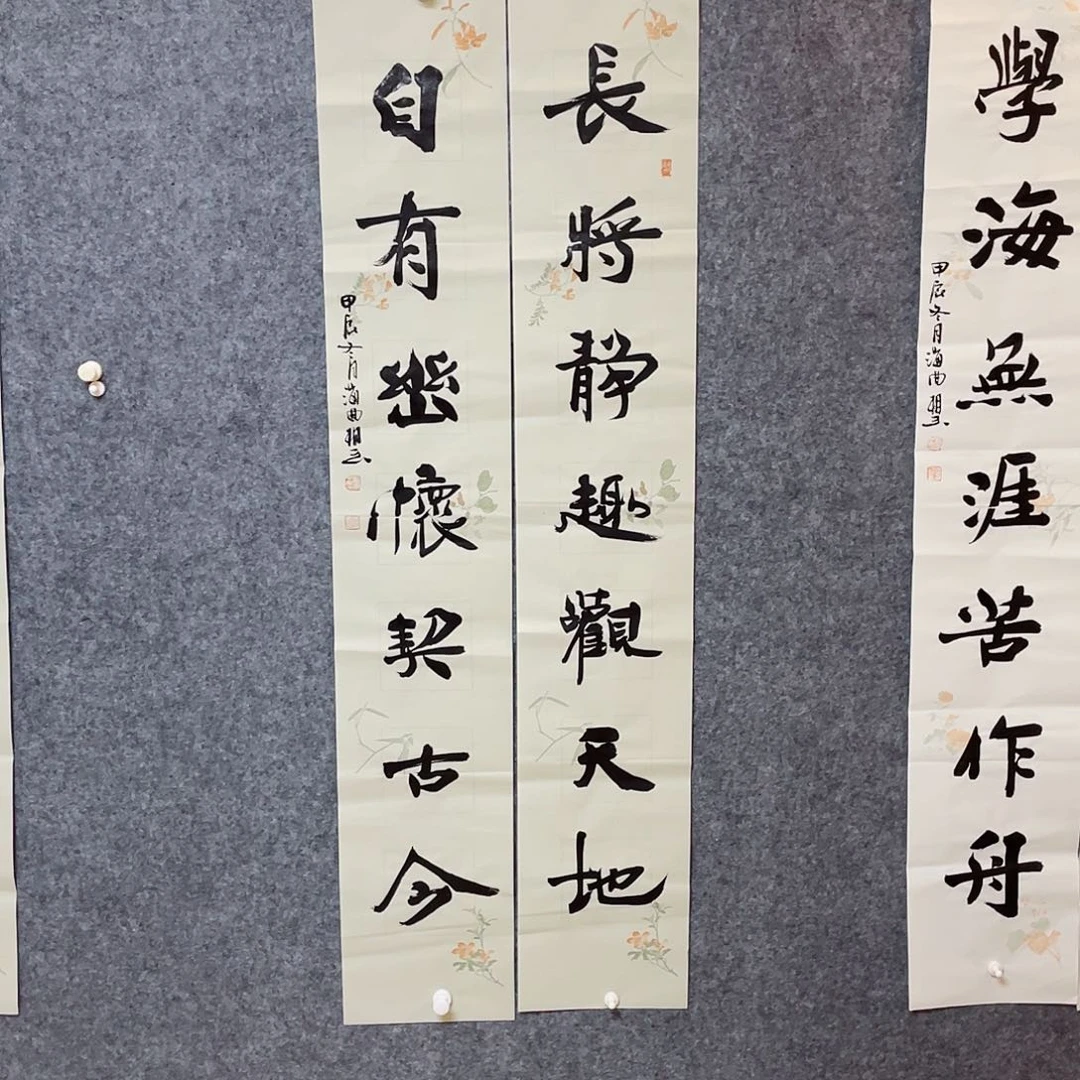 學海無涯苦作舟
甲辰冬月海曲
長將靜趣觀天地
自有幽懷契古今
甲辰冬月海曲